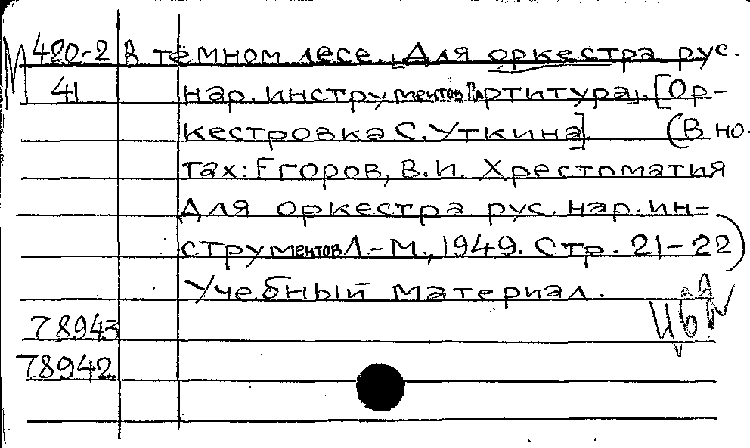 М 420-2 В темном лесе. [Для оркестра рус.
41 нар. инструментов. Партитура]. [Ор-
кестровка С. Уткина] (В но-
тах: Егоров, В.И. Хрестоматия
для оркестра рус. нар. ин-
струментов Л.-М., 1949. Стр. 21-22)
Учебный материал.
78943
78942